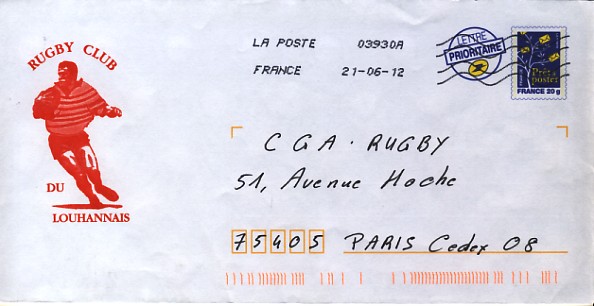 RUGBY CLUB
DU
LOUHANNAIS
LA POSTE 03930A
FRANCE 21-06-12
LETTRE
PRIORITAIRE
Prêt à
poster
FRANCE 20 g
C G A . RUGBY
51, Avenue Hoche
75405 PARIS Cedex 08